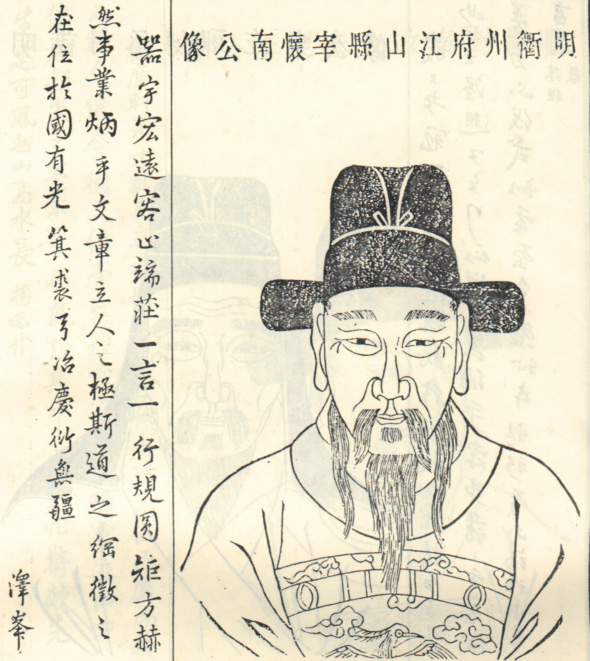 明衢州府江山縣宰懷南公像
器宇宏遠容止端莊一言一行規圓矩方赫
然事業炳乎文章立人之極斯道之綱徵之
在位於國有光箕裘弓冶慶衍無疆
澤峯